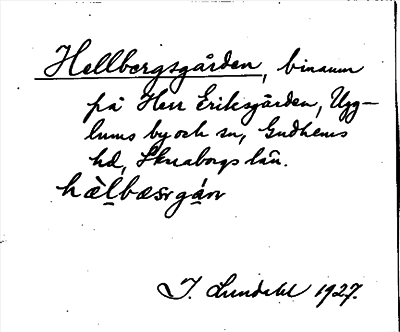 Hellbergsgården, binamn
på Herr Eriksgården, Ugg-
lums by och sn, Gudhems
hd, Skaraborgs län.
hælbæsrgár
I. Lundahl 1927.